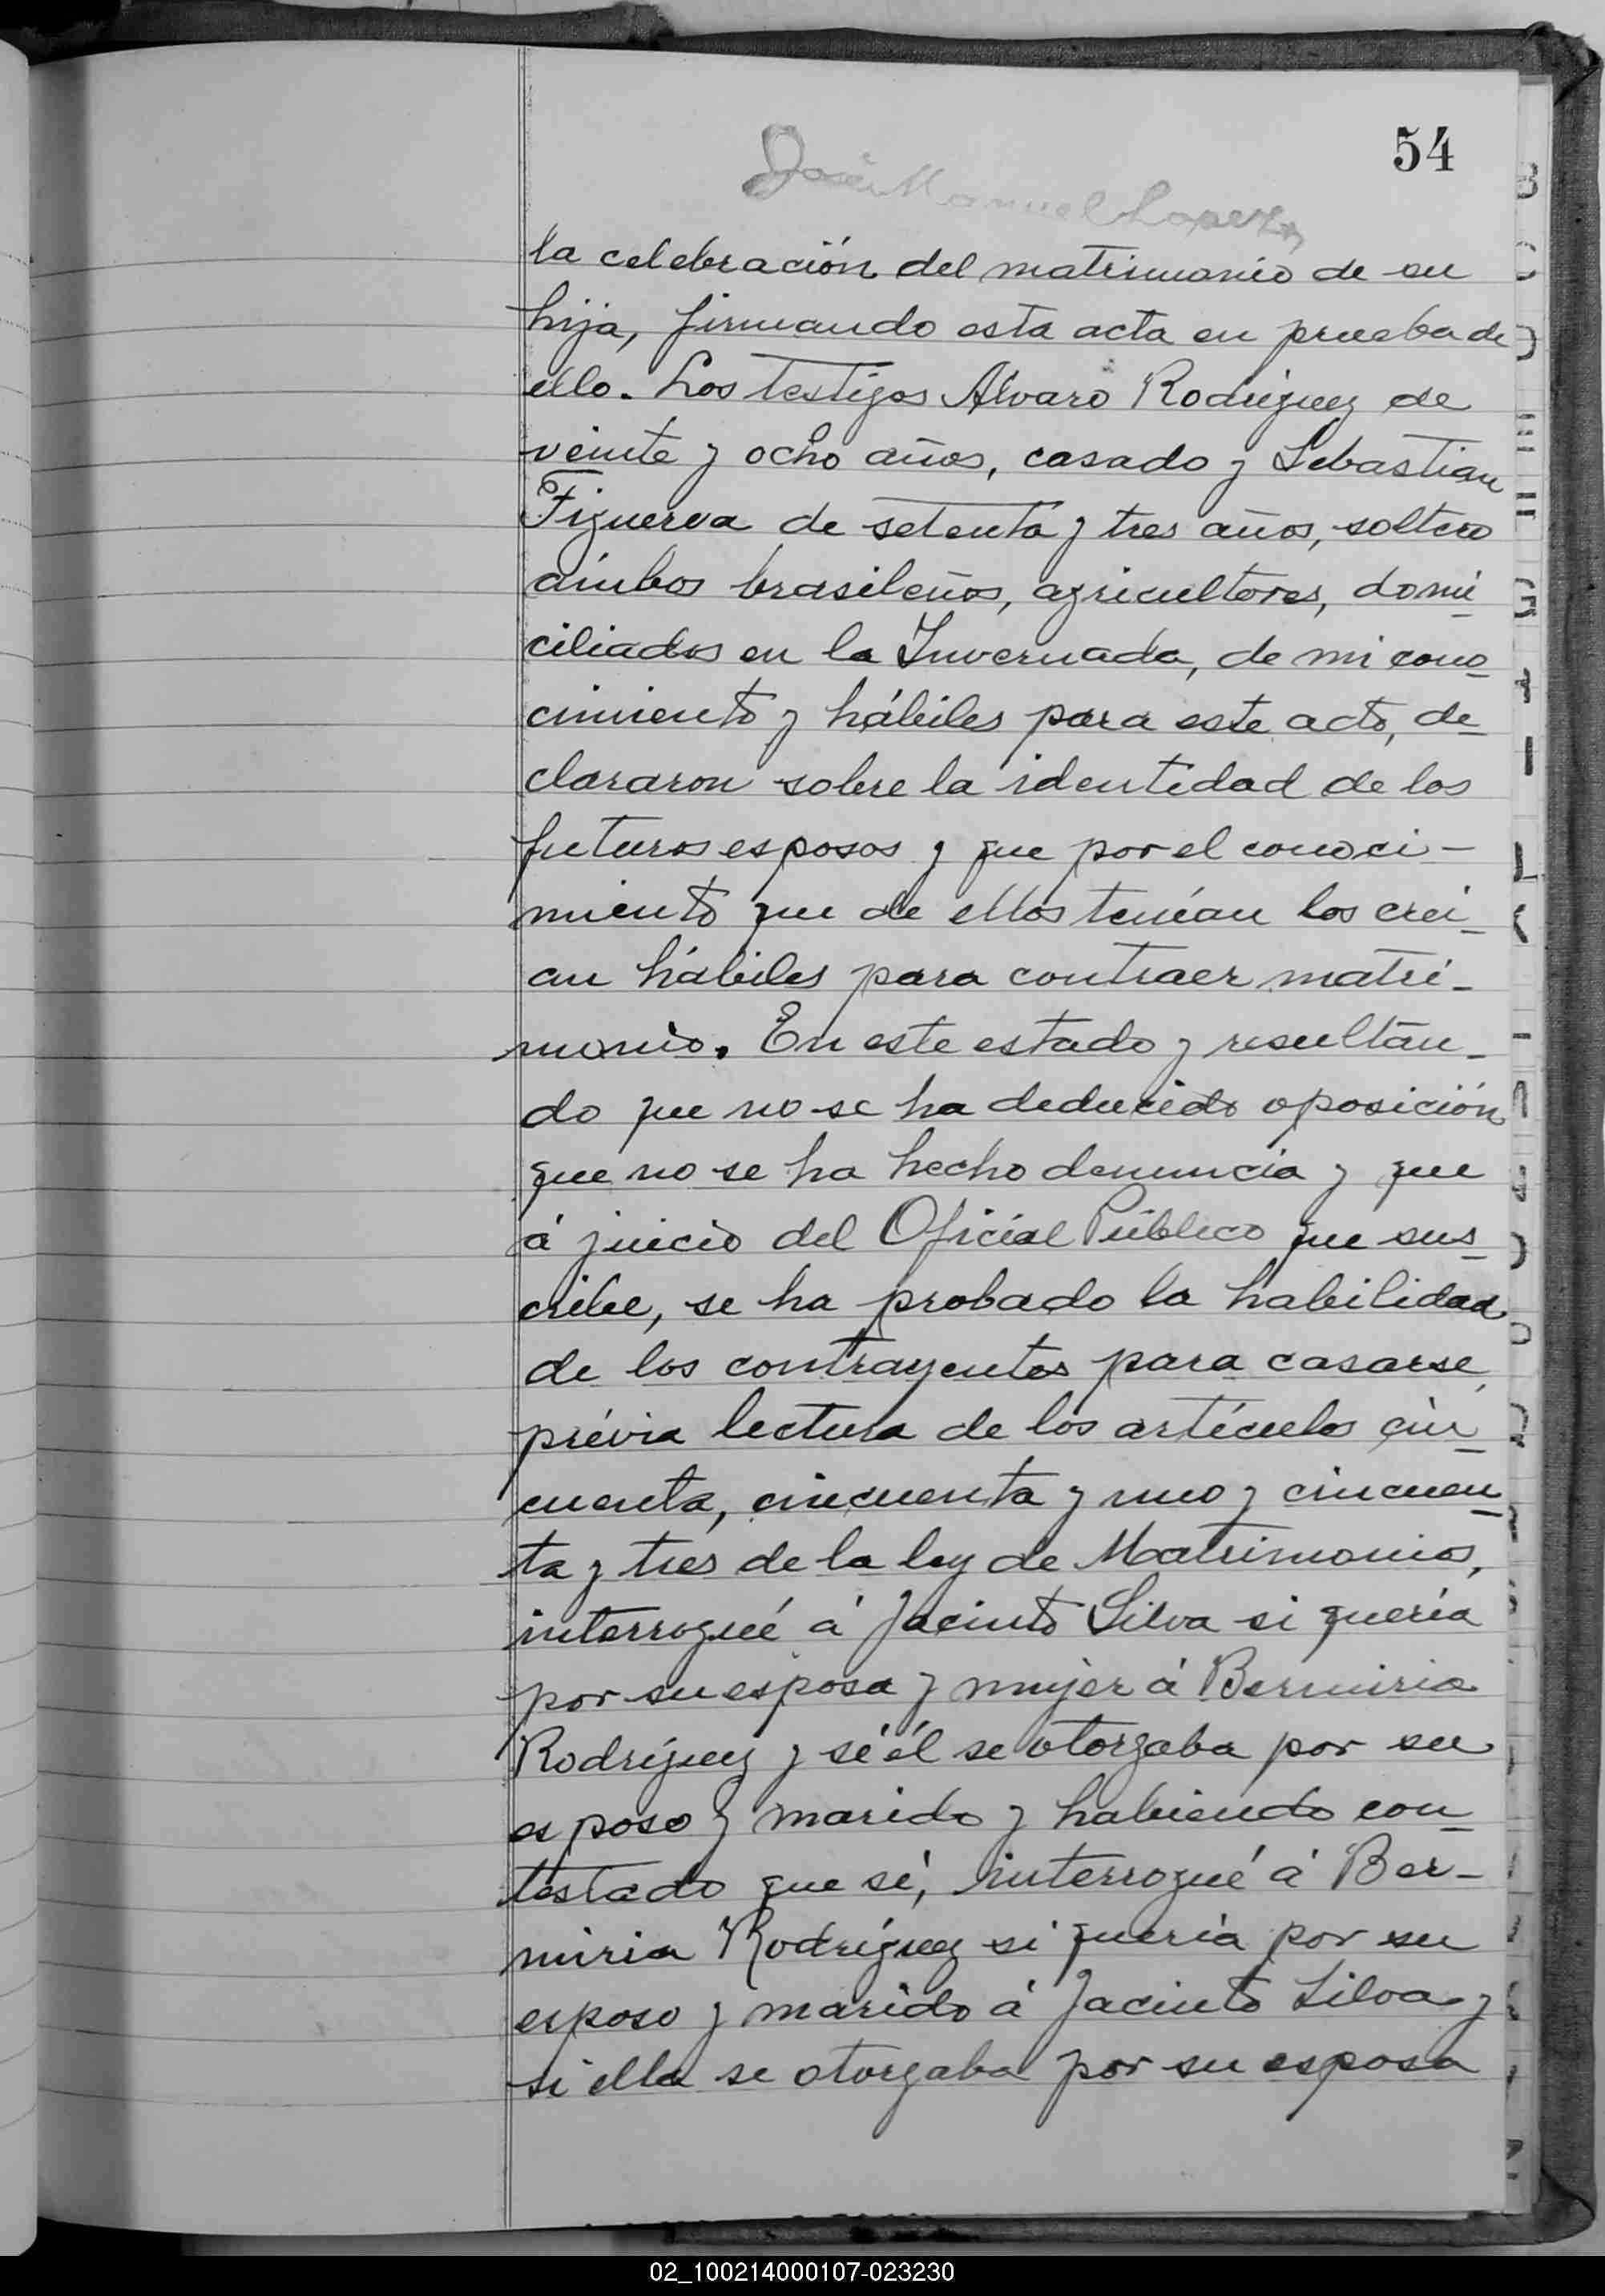 54
José Manuel Lopez
la celebración del matrimonio de su
hija, firmando esta acta en prueba de
ello. Los testigos Alvaro Rodriguez de
veinte y ocho años, casado y Sebastian
Figueroa de setenta y tres años, soltero
ambos brasileños, agricultores, domi_
ciliados en la Invernada, de mi cono_
cimiento y hábiles para este acto, de_
clararon sobre la identidad de los
futuros esposos y que por el conoci-
miento que de ellos tenían los crei_
an hábiles para contraer matri_
monio. En este estado y resultan_
do que no se ha deducido oposición
que no se ha hecho denuncia y que
á juicio del Oficial Público que sus_
cribe, se ha probado la habilidad
de los contrayentes para casarse,
prévia lectura de los artículos cin_
cuenta, cincuenta y uno y cincuen_
ta y tres de la ley de Matrimonios,
interrogué á Jacinto Silva si quería
por su esposa y mujer á Bermiria
Rodríguez y si él se otorgaba por su
esposo y marido y habiendo con_
testado que sí, interrogué á Ber-
miria Rodríguez si quería por su
esposo y marido á Jacinto Silva y
si ella se otorgaba por su esposa
02_100214000107-023230